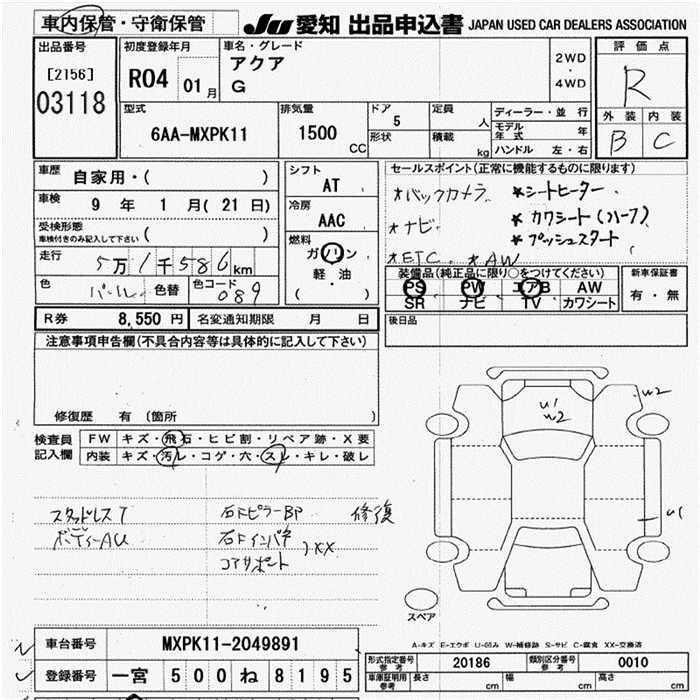 車内保管・守衛保管
JU 愛知 出品申込書 JAPAN USED CAR DEALERS ASSOCIATION
出品番号
[2156]
03118
初度登録年月
R04 01月
車名・グレード
アクア
G
2WD
・
4WD
評価点
R
外装 内装
B C
型式
6AA-MXPK11
排気量
1500 CC
ドア
5
形状
定員
人
積載
kg
ディーラー・並行
モデル年式 年
ハンドル 左・右
車歴
自家用・( )
車検
9 年 1 月(21日)
受検形態
車検付きのみ記入して下さい ( )
走行
5万1千586km
色 パール 色替 色コード 089
シフト
AT
冷房
AAC
燃料
ガソリン
軽・油
( )
セールスポイント(正常に機能するものに限ります)
*バックカメラ *シートヒーター
*ナビ *カワシート(ハーフ)
*プッシュスタート
*ETC *AW
装備品(純正品に限り○をつけてください)
PS PW エアB AW
SR ナビ TV カワシート
新車保証書
有・無
R券 8,550円 名変通知期限 月 日
後日品
注意事項申告欄(不具合内容等は具体的に記入して下さい)
修復歴 有 〔箇所 〕
検査員記入欄
FW キズ・飛石・ヒビ割・リペア跡・X要
内装 キズ・汚レ・コゲ・穴・スレ・キレ・破レ
スタッドレスT 右FピラーBP 修復
ボディーAU 右Fインパネ
コアサポート )XX
U1
W2
W2
U1
スペア
A-キズ E-エクボ U-凹み W-補修跡 S-サビ C-腐食 XX-交換済
車台番号 MXPK11-2049891
登録番号 一宮 500 ね 8195
型式指定番号 参考 20186 類別区分番号 参考 0010
車庫証明用参考 長さ cm 幅 cm 高さ cm